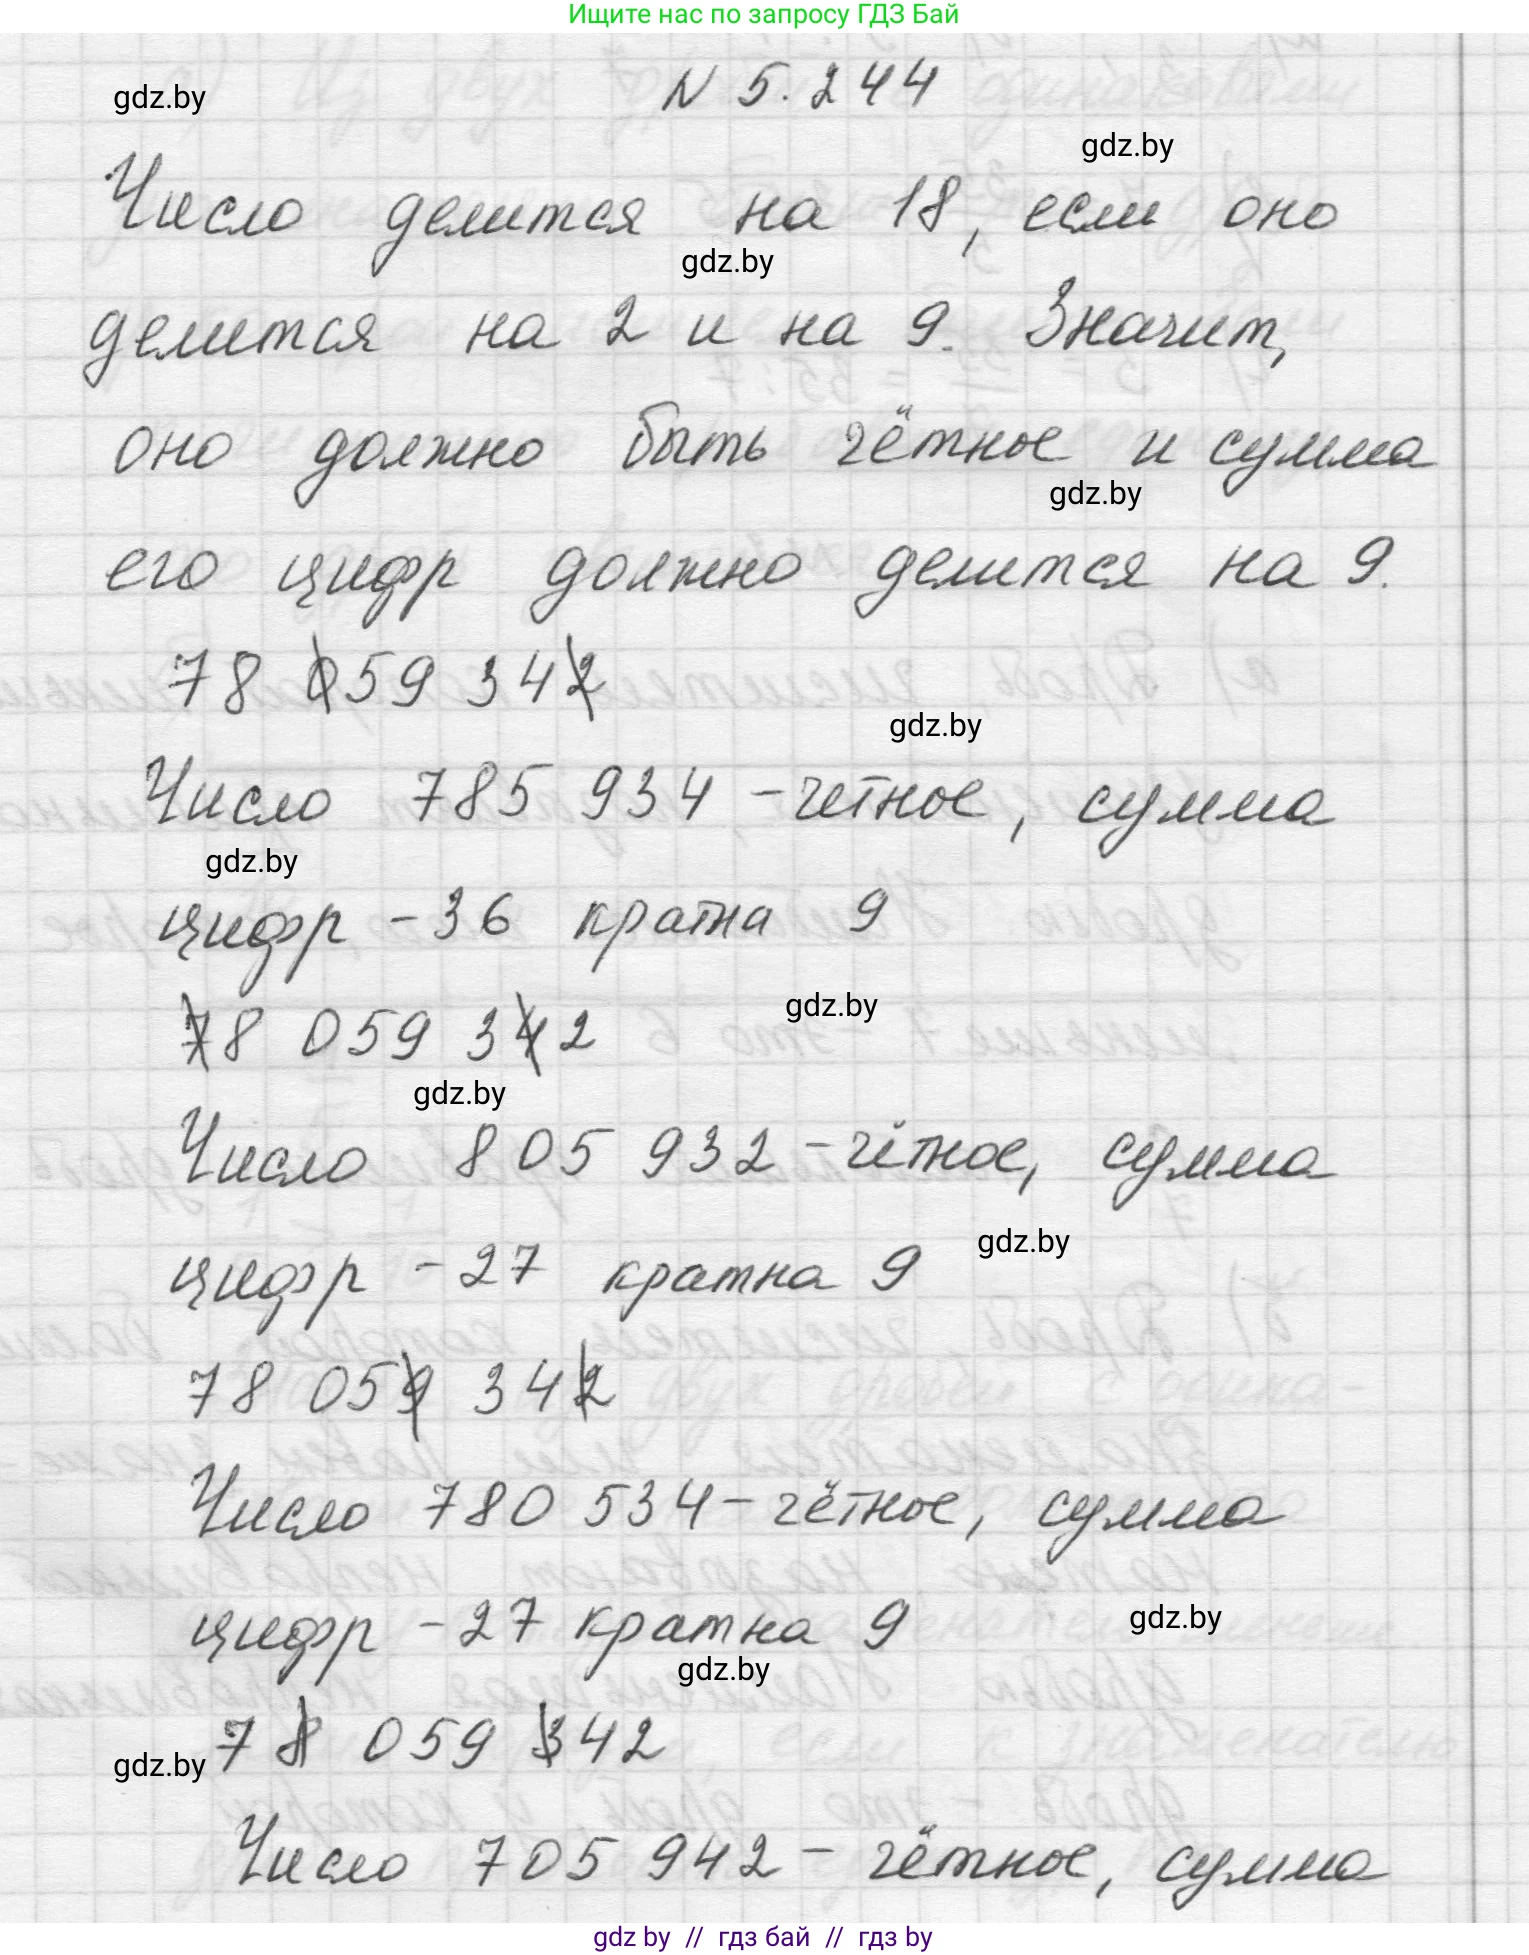 Ищите нас по запросу ГДЗ Бай
N 5.244
gdz.by
gdz.by
Число делится на 18, если оно
gdz.by
делится на 2 и на 9. Значит,
оно должно быть чётное и сумма
gdz.by
его цифр должно делится на 9.
78 059 342
gdz.by
Число 785 934 - четное, сумма
gdz.by
цифр - 36 кратна 9
gdz.by
78 059 342
gdz.by
Число 805 932 - чётное, сумма
gdz.by
цифр - 27 кратна 9
78 059 342
Число 780 534 - чётное, сумма
цифр - 27 кратна 9
gdz.by
gdz.by
78 059 342
gdz.by
Число 705 942 - чётное, сумма
gdz by // гдз бай // гдз by